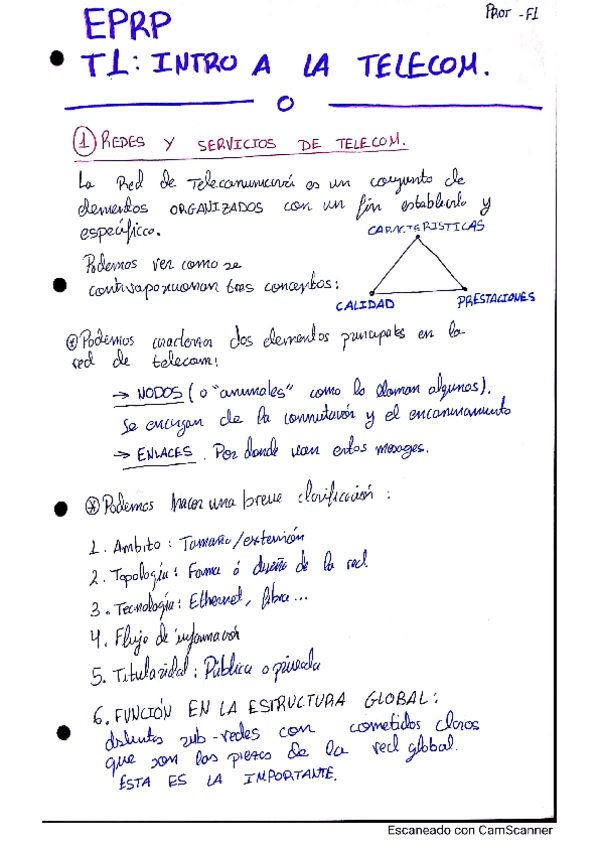 EPRP
PROT -F1
T1: INTRO A LA TELECOM.
1 REDES Y SERVICIOS DE TELECOM.
La Red de Telecomunicación es un conjunto de
elementos ORGANIZADOS con un fin establecido y
específico.
CARACTERISTICAS
Podemos ver como se
contraposicionan tres conceptos:
CALIDAD
PRESTACIONES
Podemos dos elementos principales en la
red de telecom:
→ NODOS (o "animales" como lo llaman algunos).
Se encargan de la conmutación y el encaminamiento
→ ENLACES. Por donde van estos mensajes.
Podemos hacer una breve clasificación:
1. Ambito: Tamaño/extensión
2. Topología: Forma ó diseño de la red
3. Tecnología: Ethernet, fibra...
4. Flujo de información
5. Titularidad: Pública o privada
6. FUNCIÓN EN LA ESTRUCTURA GLOBAL:
distintas sub-redes con cometidos claros
que son las piezas de la red global.
ESTA ES LA IMPORTANTE.
Escaneado con CamScanner